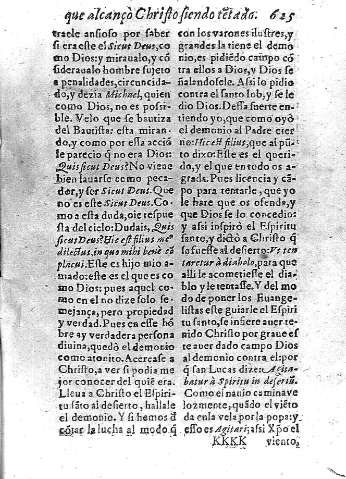 que alcançò Christo siendo tētado. 625
traele ansioso por saber
si era este el Sicut Deus, co
mo Dios; mirauaIo, y cō
siderauaIo hombre sujeto
a penalidades, circuncida-
do, y dezia Michael, quien
como Dios, no es posi-
ble. Velo que se bautiza
del Bautista: esta miran-
do, y como por esta acciō
le pareciò q̄ no era Dios:
Quis sicut Deus? No viene
bien lauarse como peca-
dor, y ser Sicut Deus. Que
no es este Sicut Deus. Co-
mo a esta duda, oie respue
sta del cielo: Dudais, Quis
sicut Deus? Hic est filius meus
dilectus, in quo mihi bene cō
placui. Este es hijo mio a-
mado: este es el que es co
mo Dios: pues aquel co-
mo en el no dize solo se-
mejança, pero propiedad
y verdad. Pues en esse hō
bre ay verdadera persona
diuina, quedò el demonio
como atonito. Acercase a
Christo, a ver si podia me
jor conocer del quiē era.
Lleua a Christo el Espiri-
tu sāto al desierto, hallale
el demonio. Y si hemos d̄
cōtar la lucha al modo q̄
con los varones ilustres, y
grandes la tiene el demo-
nio, es pidiēdo campo cō
tra ellos a Dios, y Dios se
ñalandosele. Assi lo pidio
contra el santo Iob, y se le
dio Dios. Desta suerte en-
tiendo yo, que como oyò
el demonio al Padre eter
no: Hic est filius, que al pū
to dixo: Este es el queri-
do, y el que en todo os a-
grada. Pues licencia y cā-
po para tentarle, que yo
le hare que os ofenda, y
que Dios se lo concedio:
y assi inspirò el Espiritu
santo, y dictò a Christo q̄
se fuesse al desierto: Vt ten
taretur à diabolo, para que
alli le acometiesse el dia-
blo y le tentasse. Y del mo
do de poner los Euange-
listas este guiarle el Espiri
tu santo, se infiere auer te-
nido Christo por graue es
te auer dado campo Dios
al demonio contra el: por
q̄ san Lucas dize: Agita-
batur à Spiritu in desertū.
Como el nauio caminave
lozmente, quādo el viēto
da en la vela por la popa: y
esso es Agitari; assi Xp̄o el
KKKK viento,